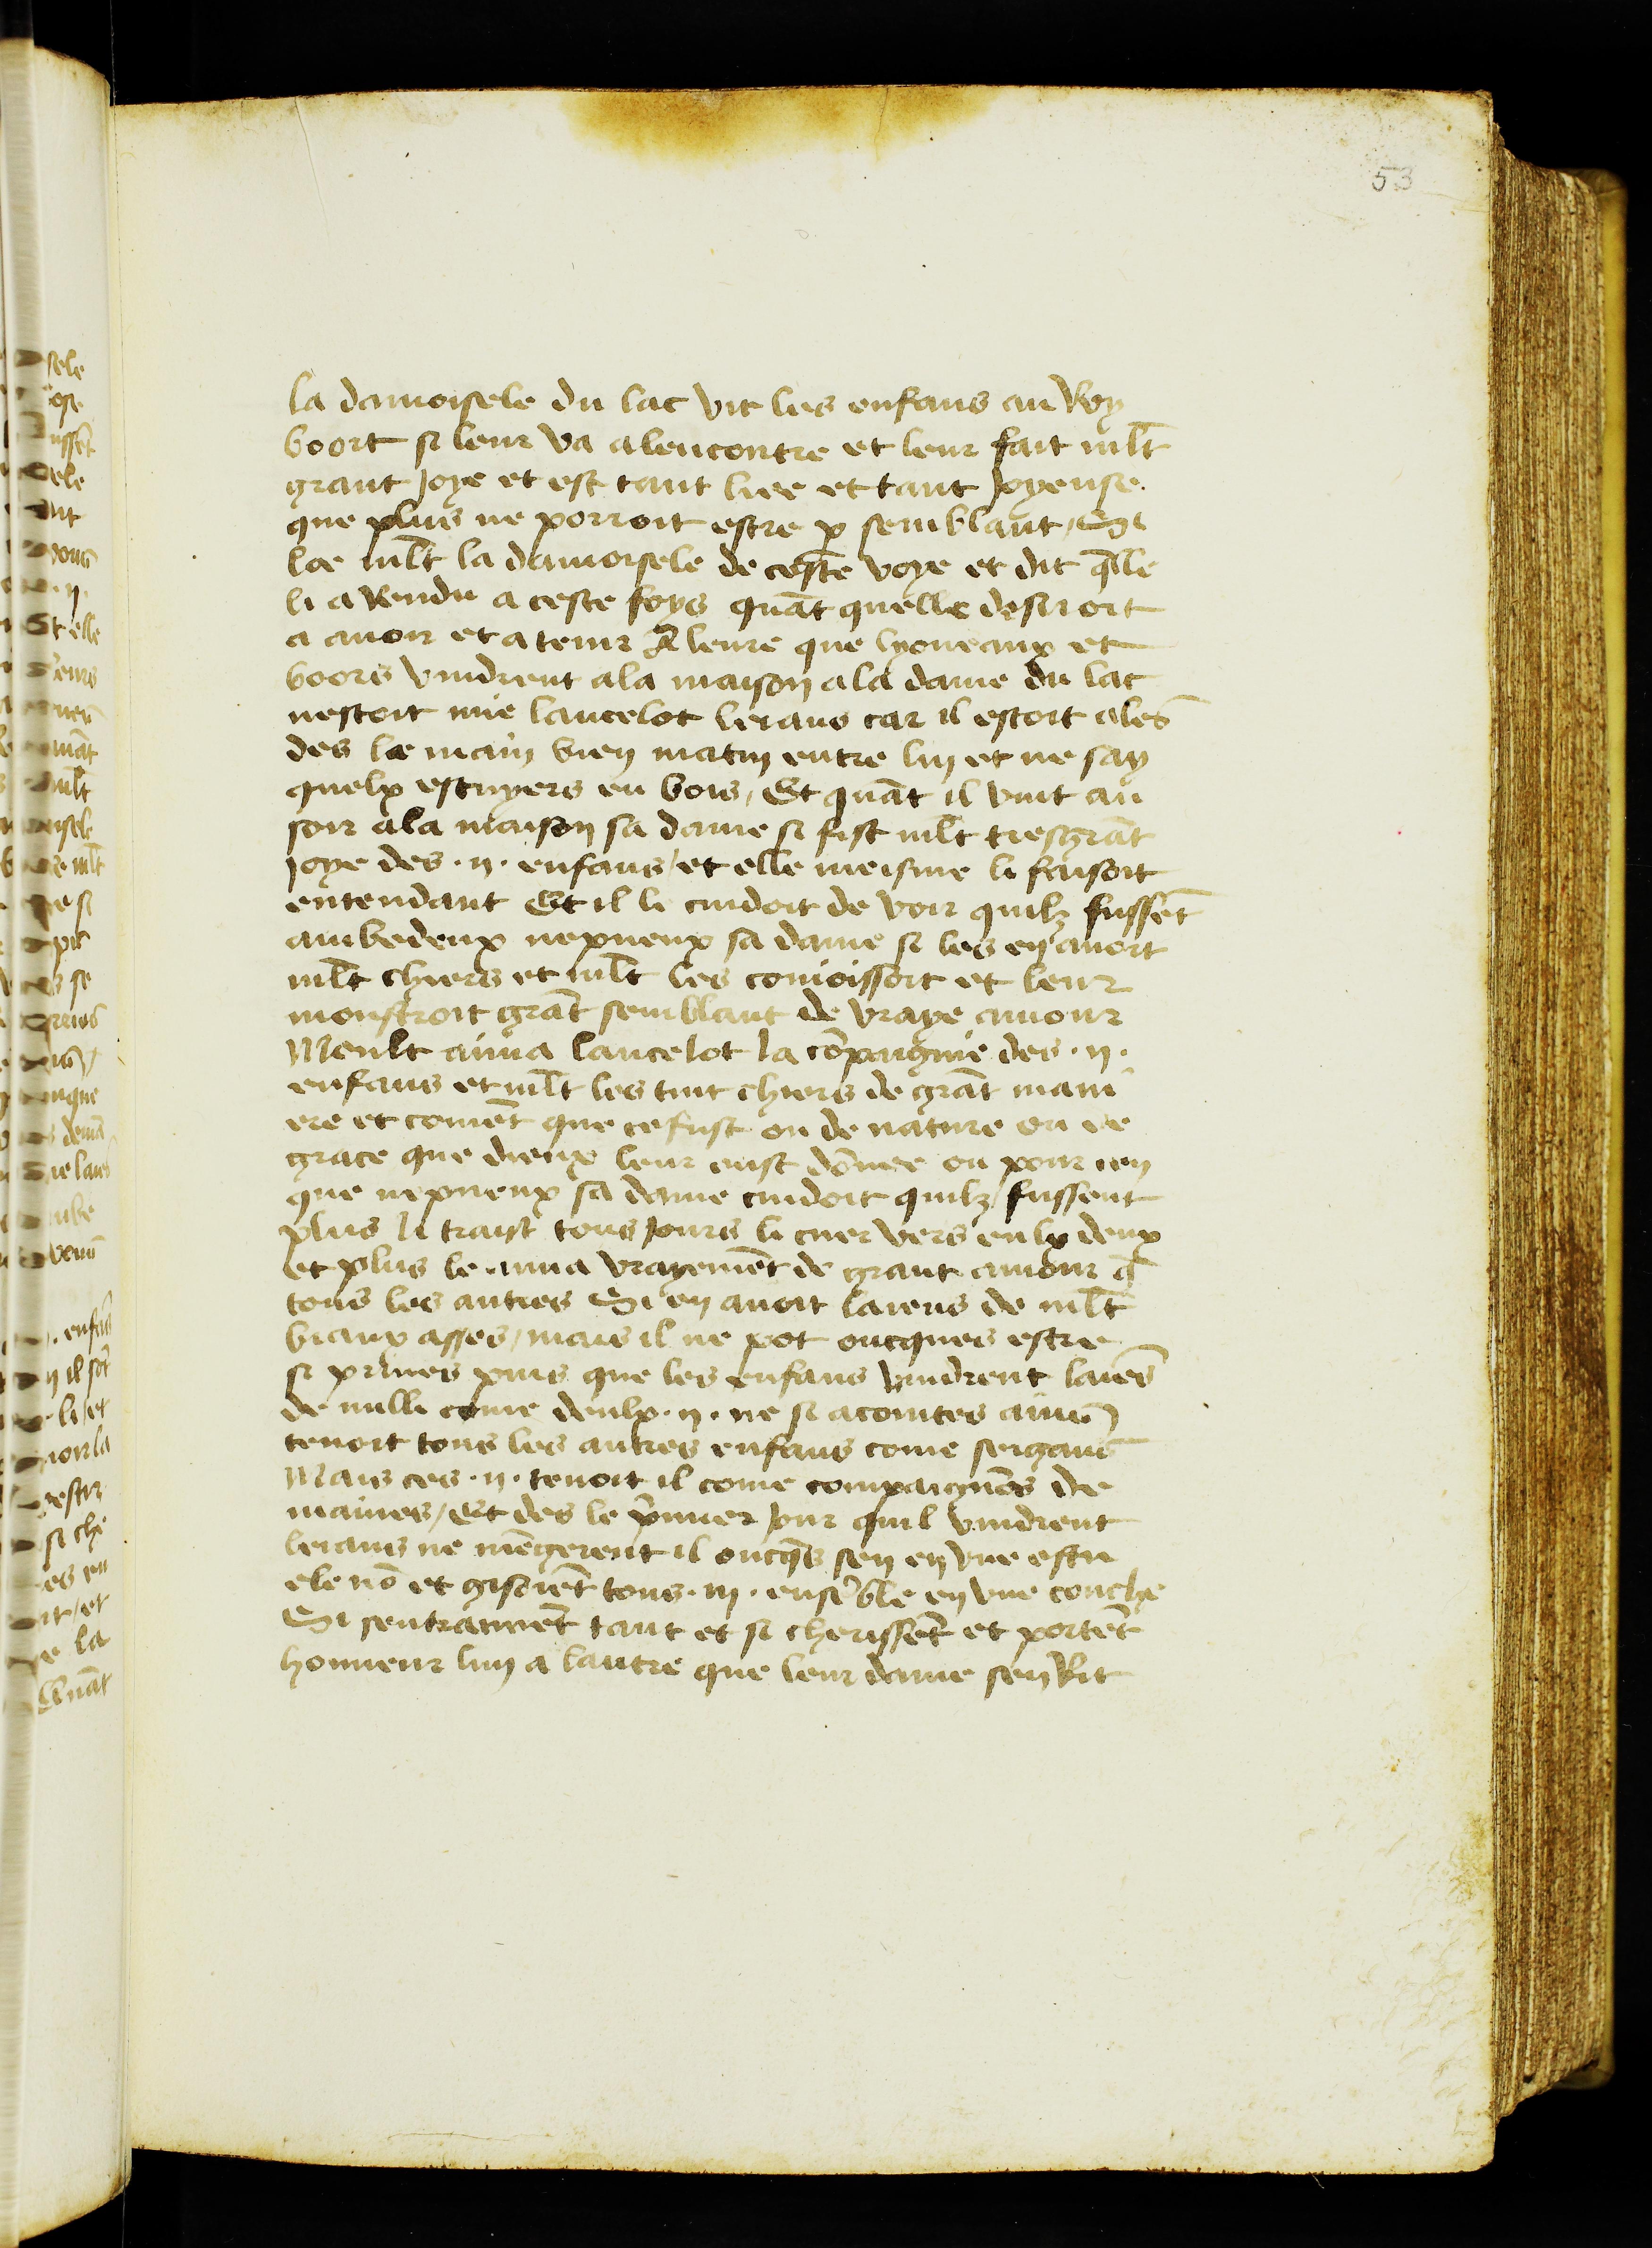 53
la damoisele du lac vit les enfans au Roy
boort si leur va alencontre et leur fait mlt̄
grant joye et est tant liee et tant joyeuse.
que plus ne porroit estre ꝑ semblant / Si
loe mlt̄ la damoisele de ceste voye et dit q̄lle
li a Rendu a ceste foys quāt quelle desiroit
a auoir et a tenir A leure que lyoneaux et
boors vindrent ala maison ala dame du lac
nestoit mie lancelot leians car il estoit ales
des le main bien matin entre luy et ne say
quelx escuyers en bois / Et quāt il vint au
soir ala maison sa dame si fist mlt̄ tresgrāt
joye des .ij. enfans / et elle meisme li faisoit
entendant Et il le cuidoit de voir quilz fussēt
ambedeux nepueux sa dame si les en auoit
mlt̄ chiers et mlt̄ les conioissoit et leur
monstroit grāt semblant de vraye amour
Moult aima lancelot la cōpaignie des .ij.
enfans et mlt̄ les tint chiers de grāt mani
ere et comēt que ce fust ou de nature ou de
grace que dieux leur eust dōnee ou pour cen
que nepueux sa dame cuidoit quilz fussent
plus li traist tous jours li cuer vers eulx deux
et plus le ama vrayemēt de grant amour q̄
tous les autres Si en auoit laiens de mlt̄
biaux asses / mais il ne pot oncques estre
si priues puis que les enfans vindrent laiēs
de nulli come deulx .ij. ne si acointes
tenoit tous les autres enfans come sergans
Mais ces .ij. tenoit il come compaignōs de
maines / Et des le p̄mier jour quil vindrent
leians ne mēgerent il oncq̄s sen en vne escu
ele nō et gisoiēt tous .iij. ensēble en vne couche
Si sentraimēt tant et si cherissēt et portēt
honneur lun a lautre que leur dame sen Rit